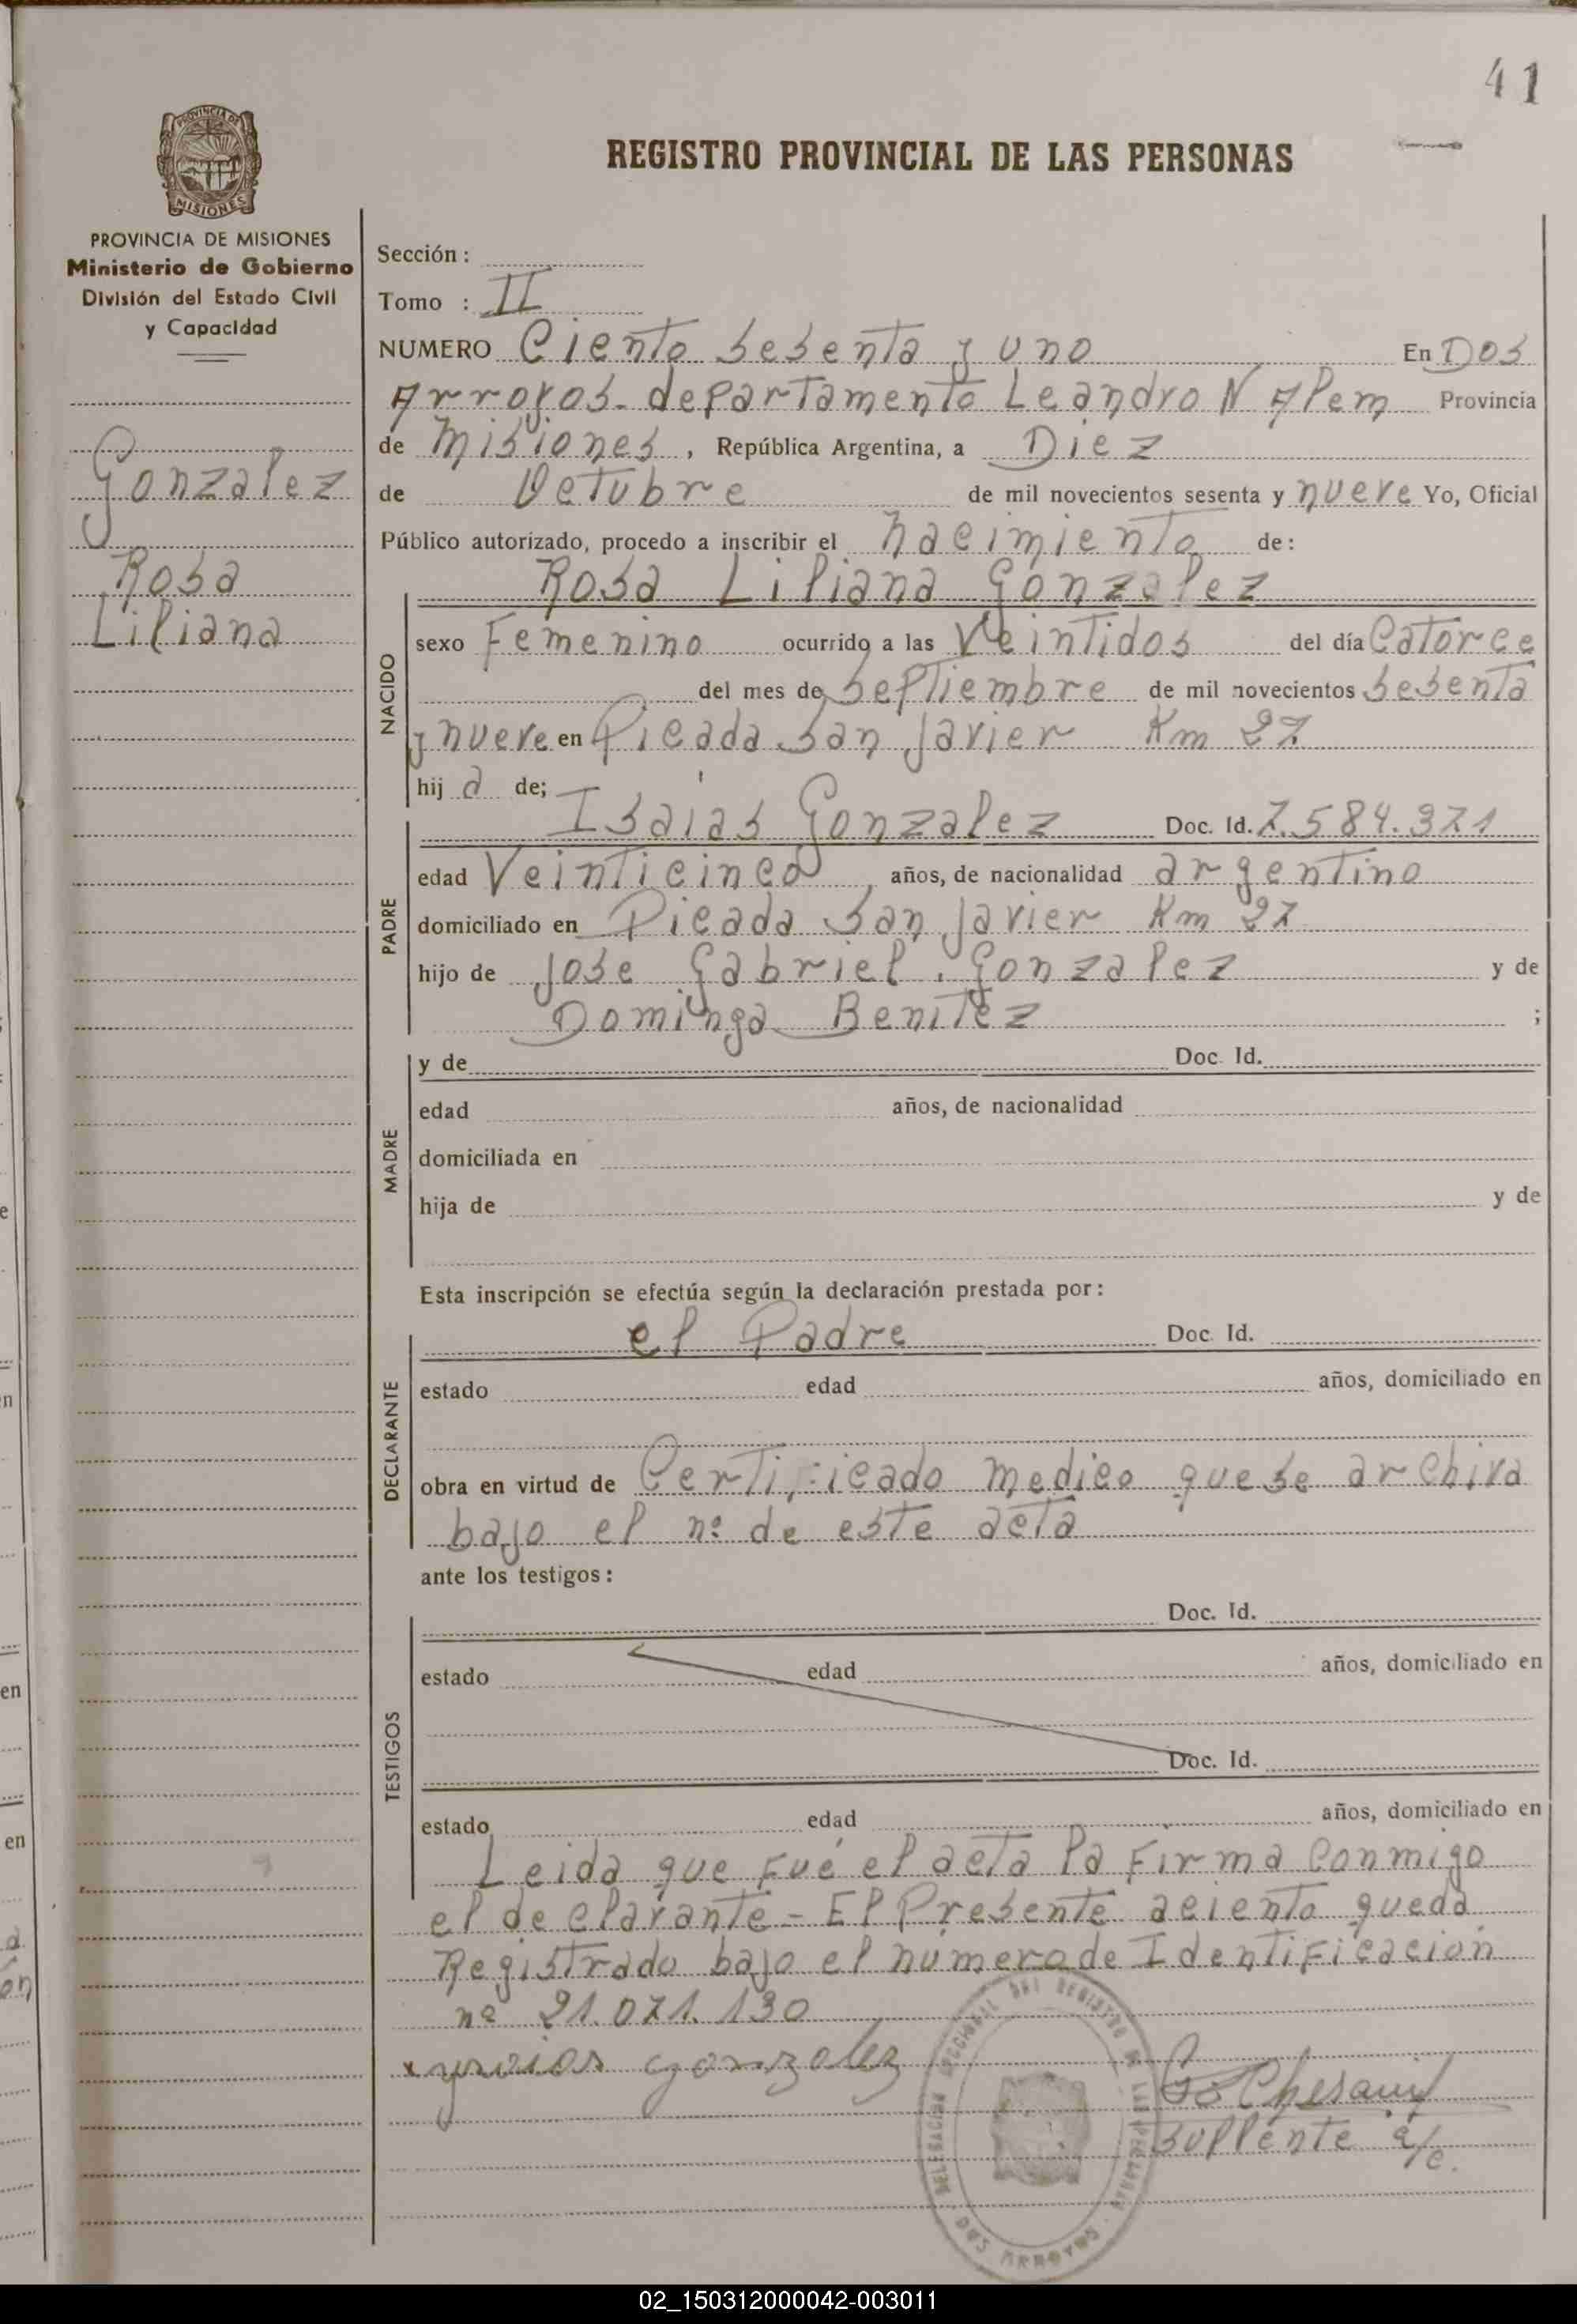 41
PROVINCIA DE
MISIONES
REGISTRO PROVINCIAL DE LAS PERSONAS
PROVINCIA DE MISIONES
Ministerio de Gobierno
División del Estado Civil
y Capacidad
Gonzalez
Rosa
Liliana
Sección :
Tomo : II
NUMERO Ciento sesenta y uno En Dos
Arroyos - departamento Leandro N Alem Provincia
de Misiones, República Argentina, a Diez
de Octubre de mil novecientos sesenta y nueve Yo, Oficial
Público autorizado, procedo a inscribir el nacimiento de:
NACIDO
Rosa Liliana Gonzalez
sexo Femenino ocurrido a las Veintidos del día Catorce
del mes de Septiembre de mil novecientos sesenta
y nueve en Picada San Javier Km 27
hij a de;
PADRE
Isaias Gonzalez Doc. Id. 7.584.371
edad Veinticinco años, de nacionalidad argentino
domiciliado en Picada San Javier Km 27
hijo de Jose Gabriel Gonzalez y de
Dominga Benitez ;
MADRE
y de Doc. Id.
edad años, de nacionalidad
domiciliada en
hija de y de
Esta inscripción se efectúa según la declaración prestada por:
DECLARANTE
el Padre Doc. Id.
estado edad años, domiciliado en
obra en virtud de Certificado medico que se archiva
bajo el nº de este acta
ante los testigos:
TESTIGOS
Doc. Id.
estado edad años, domiciliado en
Doc. Id.
estado edad años, domiciliado en
Leida que fué el acta la firma conmigo
el declarante - El Presente aciento queda
Registrado bajo el número de Identificación
nº 21.071.130
Gonzalez
Suplente a/c.
DOS ARROYOS
02_150312000042-003011